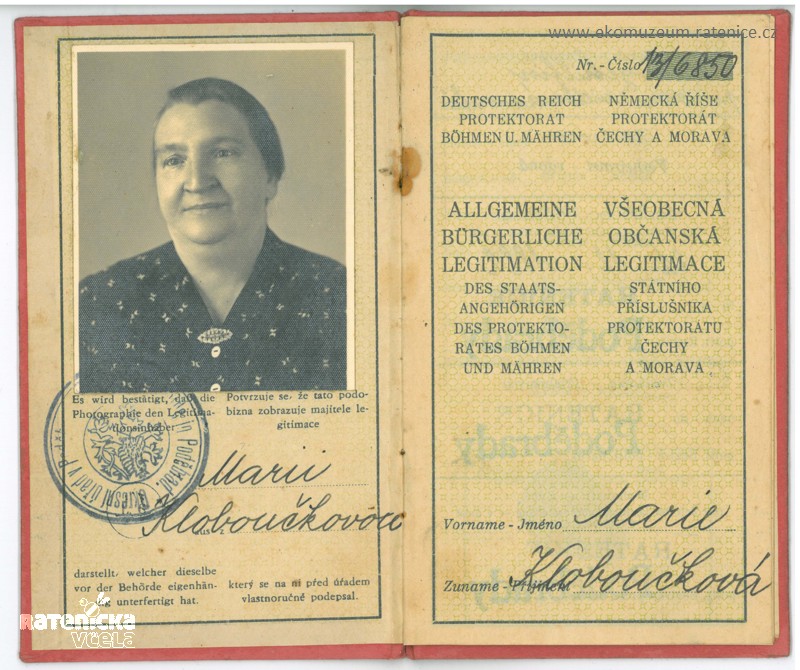 Es wird bestätigt, daß die
Photographie den Legitima-
tionsinhaber
Potvrzuje se, že tato podo-
bizna zobrazuje majitele le-
gitimace
Marii
Kloboučkovou
darstellt, welcher dieselbe
vor der Behörde eigenhän-
dig unterfertigt hat.
který se na ni před úřadem
vlastnoručně podepsal.
RATENICKÁ
VČELA
www.ekomuzeum.ratenice.cz
Nr. - Číslo 13/6850
DEUTSCHES REICH
PROTEKTORAT
BÖHMEN U. MÄHREN
NĚMECKÁ ŘÍŠE
PROTEKTORÁT
ČECHY A MORAVA
ALLGEMEINE
BÜRGERLICHE
LEGITIMATION
DES STAATS-
ANGEHÖRIGEN
DES PROTEKTO-
RATES BÖHMEN
UND MÄHREN
VŠEOBECNÁ
OBČANSKÁ
LEGITIMACE
STÁTNÍHO
PŘÍSLUŠNIKA
PROTEKTORATU
ČECHY
A MORAVA
Vorname - Jméno Marie
Zuname - Příjmení Kloboučková